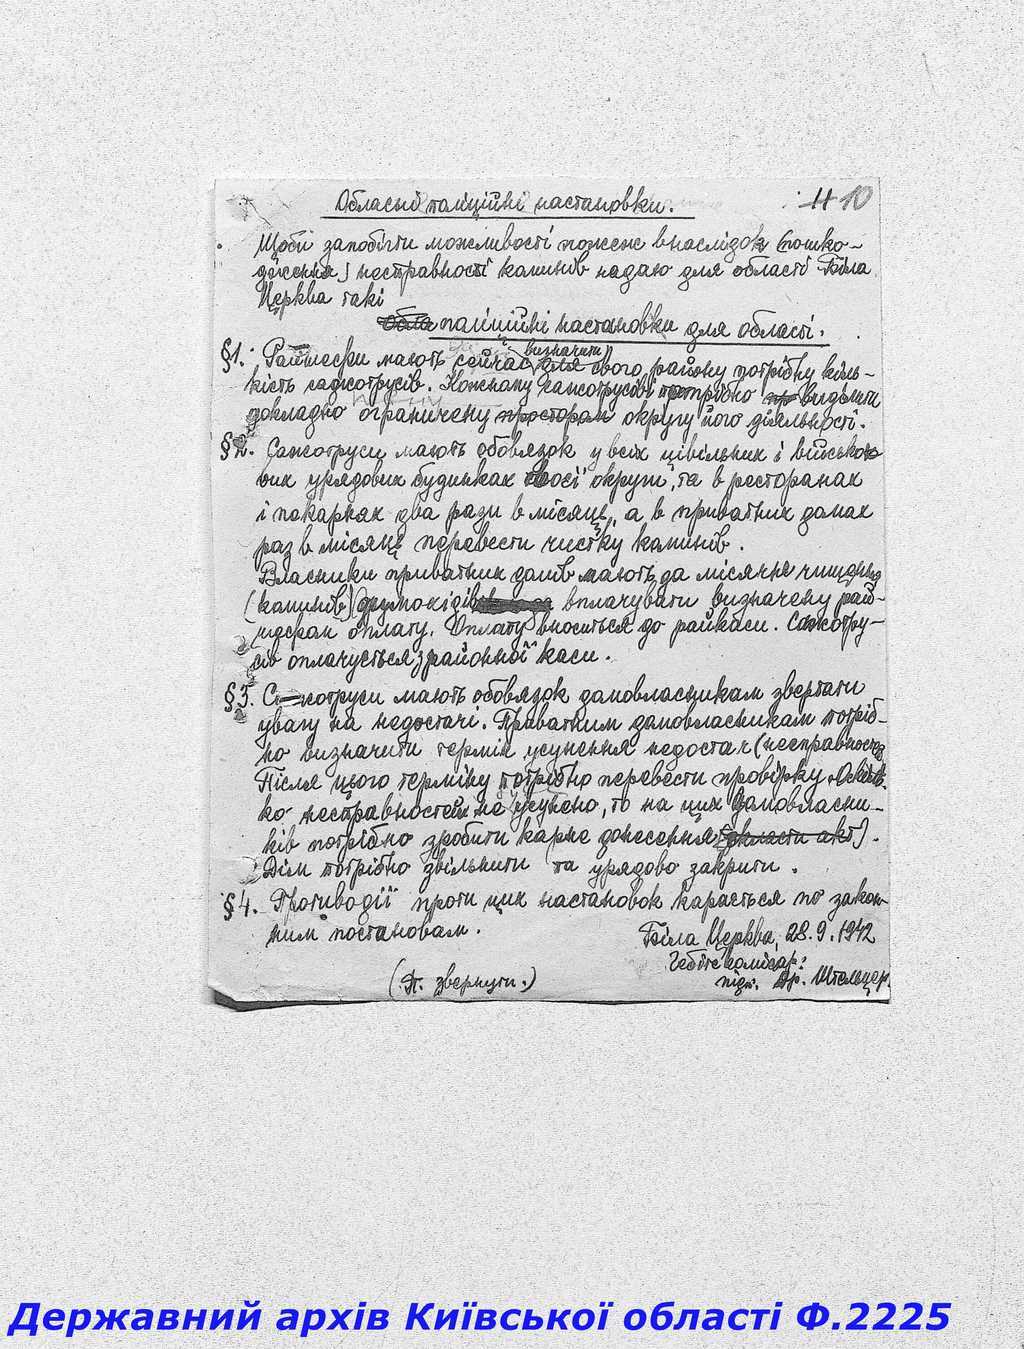 Обласні поліційні настановки.
10
Щоби запобігти можливості пожеж внаслідок (пошко-
дження) несправності каминів надаю для області Біла
Церква такі
обла поліційні настановки для області.
§1. Райшефи мають сейчас визначити для свого району потрібну кіль-
кість сажотрусів. Кожному сажотрусові потрібно виділити
докладно ограничену простором округу його діяльності.
§2. Сажотруси мають обовязок у всіх цівільних і військо-
вих урядових будинках своєї округи, та в ресторанах
і пекарнях два рази в місяць, а в приватних домах
раз в місяць перевести чистку каминів.
Власники приватних домів мають за місячне чищення
(каминів) димоходів вплачувати визначену рай-
шефом оплату. Оплату вноситься до райкаси. Сажотру-
сів оплачується з районної каси.
§3. Сажотруси мають обовязок домовласникам звертати
увагу на недостачі. Приватним домовласникам потріб-
но визначити термін усунення недостач (несправностей)
Після цього терміну потрібно перевести провірку. Оскіль-
ко несправностей не усунено, то на цих домовласни-
ків потрібно зробити карне донесення (скласти акт).
Дім потрібно звільнити та урядово закрити.
§4. Противодії проти цих настановок карається по закон-
ним постановам.
Біла Церква, 28.9.1942
Гебітскомісар:
підп. Др. Штельцер.
(звернути.)
Державний архів Київської області Ф.2225